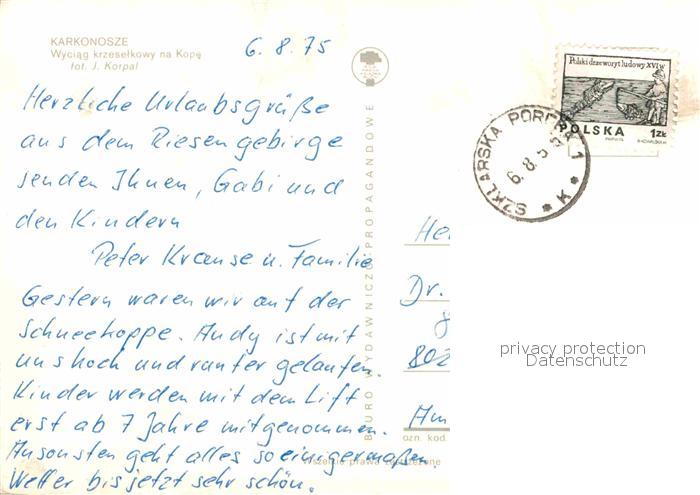 KARKONOSZE
Wyciąg krzesełkowy na Kopę
fot. J. Korpal
6.8.75
Herzliche Urlaubsgrüße
aus dem Riesengebirge
senden Ihnen, Gabi und
den Kindern
Peter Krause u. Familie
Gestern waren wir auf der
Schneekoppe. Andy ist mit
uns hoch und runter gelaufen.
Kinder werden mit dem Lift
erst ab 7 Jahre mitgenommen.
Ansonsten geht alles so einigermaßen.
Wetter bis jetzt sehr schön.
BIURO WYDAWNICZO PROPAGANDOWE
Polski drzeworyt ludowy XVI w
POLSKA 1zł
SZKLARSKA PORĘBA 1
6.8.5
* K *
He
Dr.
8
802
Am
ozn. kod.
privacy protection
Datenschutz
Wszelkie prawa zastrzeżone